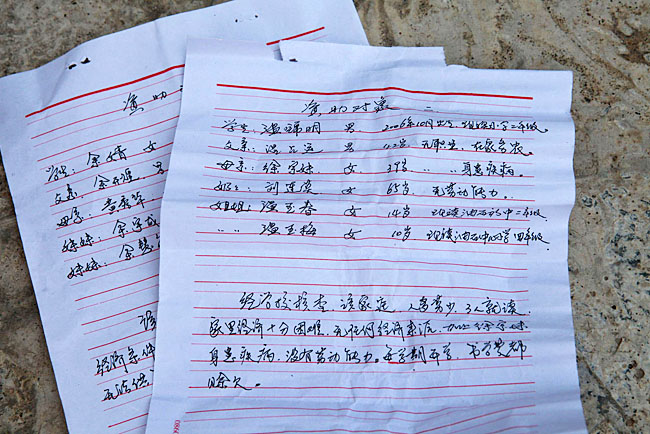 资助对象
学生: 温 明 男 2006年10月出生, 现读小学二年级。
父亲: 温 男 42岁 无职业, 在家务农。
母亲: 徐宗妹 女 39岁 〃 〃 身患疾病。
奶奶: 刘连 女 65岁 无劳动能力。
姐姐: 温玉春 女 14岁 现读油石初中二年级
〃 〃 温玉梅 女 10岁 现读油石中心小学四年级
经学校核查, 该家庭, 人多劳少, 3人就读,
家里经济十分困难, 无任何经济来源, 加上徐宗妹
身患疾病, 没有劳动能力, 每学期开学, 书学费都
赊欠。
资助
学生: 余 女
父亲: 余 男
母亲:
妹妹: 余
妹妹: 余慧
该
经济条件
无法供